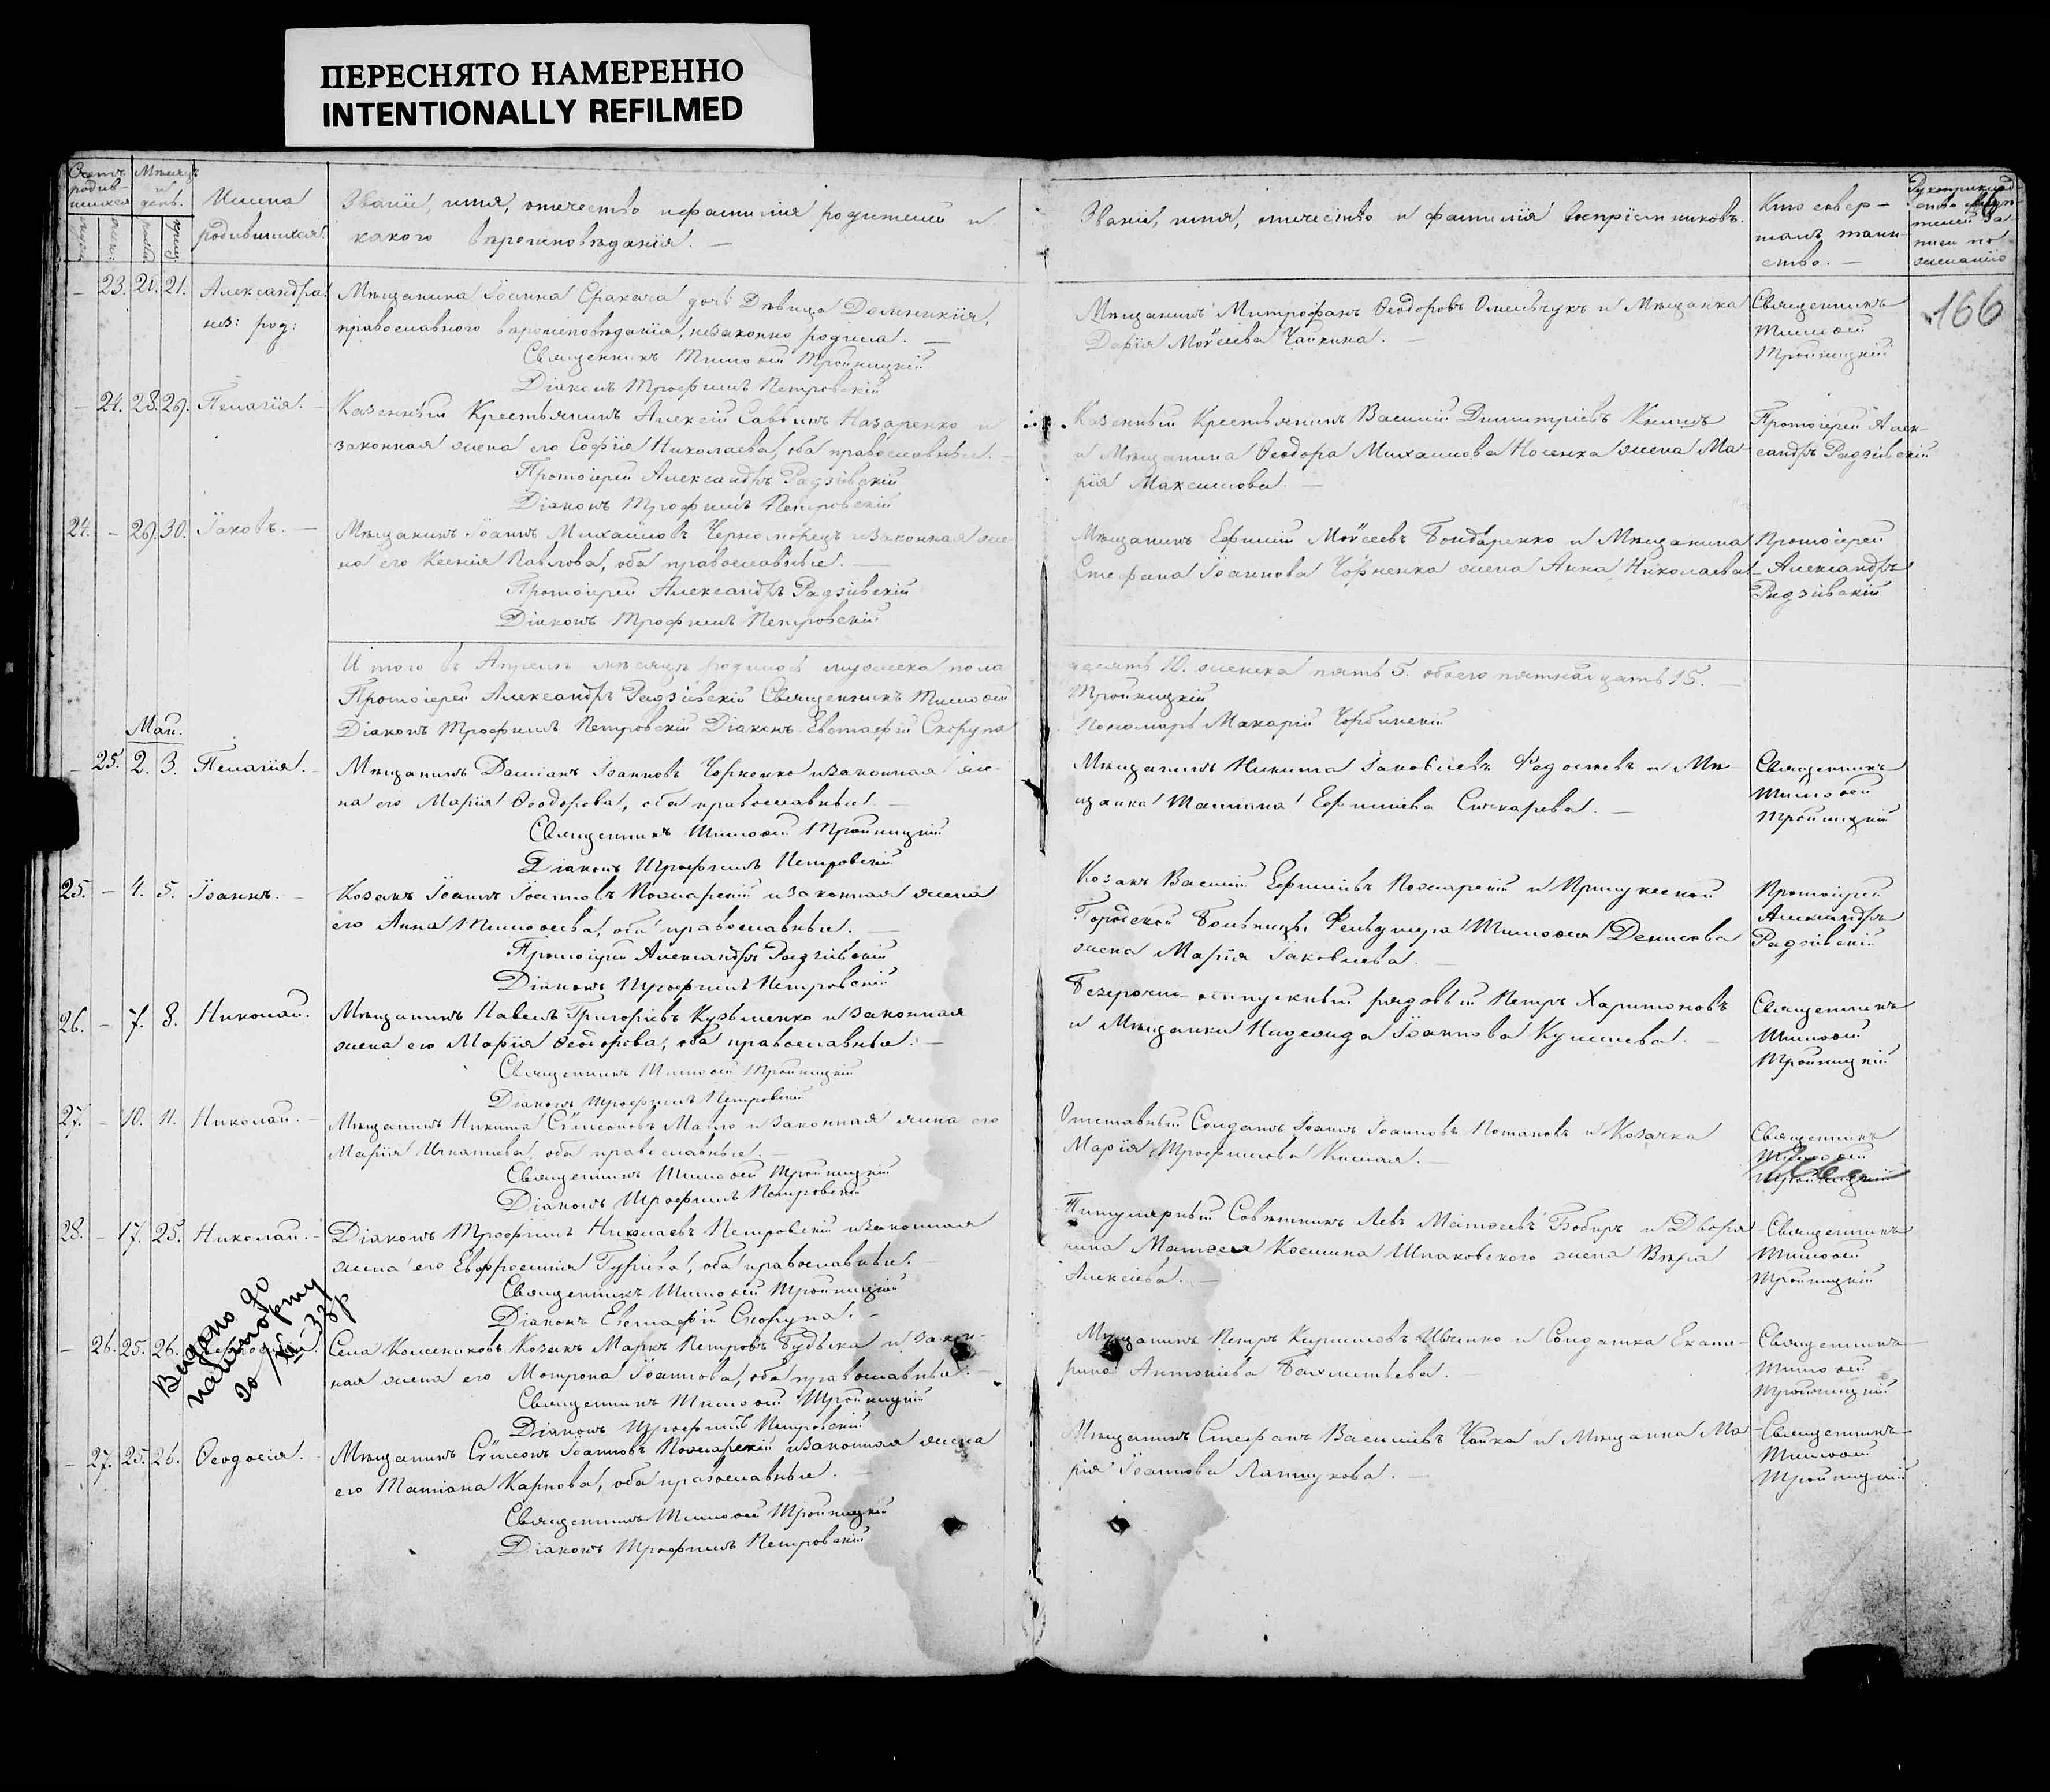 ПЕРЕСНЯТО НАМЕРЕННО
INTENTIONALLY REFILMED
Имена
родившихся.
Званіе, имя, отечество и фамилія родителей и
какого вѣроисповѣданія. —
Званіе, имя, отечество и фамилія воспріемниковъ.
Кто совер-
шалъ таин-
ство. —
166
— 23. 21. 21. Александра
нез: род:
Мѣщанина Іоанна дочь Дѣвица Домникія,
православнаго вѣроисповѣданія, незаконно родила. —
Священникъ Тимоѳей Тройницкій
Діаконъ Трофимъ Петровскій
Мѣщанинъ Митрофанъ Ѳеодоровъ Омельчукъ и Мѣщанка
Дарія Моѵсеева Чайкина. —
Священникъ
Тимоѳей
Тройницкій
— 24. 28. 29. Пелагія. —
Казенный Крестьянинъ Алексій Саввинъ Назаренко и
законная жена его Софія Николаева, оба православные. —
Протоіерей Александръ Радзіевскій
Діаконъ Трофимъ Петровскій
Казенный Крестьянинъ Василій Димитріевъ
и Мѣщанина Ѳеодора Михаилова Носенка жена Ма-
рія Максимова. —
Протоіерей Алек-
сандръ Радзіевскій
24. — 29. 30. Іаковъ. —
Мѣщанинъ Іоаннъ Михаиловъ Черноморецъ и законная же-
на его Ксенія Павлова, оба православные. —
Протоіерей Александръ Радзіевскій
Діаконъ Трофимъ Петровскій
Мѣщанинъ Ефимій Моѵсеевъ Бондаренко и Мѣщанина
Стефана Іоаннова Чорненка жена Анна Николаева
Протоіерей
Александръ
Радзіевскій
Итого въ Апрѣлѣ мѣсяцѣ родилось мужеска пола
десять 10. женска пять 5. обоего пятнадцать 15. —
Протоіерей Александръ Радзіевскій Священникъ Тимоѳей
Тройницкій
Діаконъ Трофимъ Петровскій Діаконъ Евстафій Скорупа
Пономарь Макарій
Май.
— 25. 2. 3. Пелагія. —
Мѣщанинъ Даміанъ Іоанновъ Чорненко и законная же-
на его Марія Ѳеодорова, оба православные. —
Священникъ Тимоѳей Тройницкій
Діаконъ Трофимъ Петровскій
Мѣщанинъ Никита Іаковлевъ Федосѣевъ и Мѣ-
щанка Татіана Ефимієва —
Священникъ
Тимоѳей
Тройницкій
25. — 4. 5. Іоаннъ. —
Козакъ Іоаннъ Іоанновъ Пожарскій и законная жена
его Анна Тимоѳеева, оба православные. —
Протоіерей Александръ Радзіевскій
Діаконъ Трофимъ Петровскій
Козакъ Василій Ефиміевъ Пожарскій и Прилукской
Городской Больницы Фельдшера Тимоѳея Денисова
жена Марія Іаковлева. —
Протоіерей
Александръ
Радзіевскій
26. — 7. 8. Николай.
Мѣщанинъ Павелъ Григоріевъ Кузьменко и законная
жена его Марія Ѳеодорова, оба православные. —
Священникъ Тимоѳей Тройницкій
Діаконъ Трофимъ Петровскій
Безсрочно-отпускный рядовый Петръ Харитоновъ
и Мѣщанка Надежда Іоаннова —
Священникъ
Тимоѳей
Тройницкій
27. — 10. 11. Николай. —
Мѣщанинъ Никита Сѵмеоновъ и законная жена его
Марія Игнатіева, оба православные. —
Священникъ Тимоѳей Тройницкій
Діаконъ Трофимъ Петровскій
Отставный Солдатъ Іоаннъ Іоанновъ Потаповъ и Козачка
Марія Трофимова —
Священникъ
Тимоѳей
Тройницкій
28. — 17. 25. Николай. —
Діаконъ Трофимъ Николаевъ Петровскій и законная
жена его Евфросинія Гуріева, оба православные. —
Священникъ Тимоѳей Тройницкій
Діаконъ Евстафій Скорупа. —
Титулярный Совѣтникъ Левъ Матѳеевъ Бобырь и Дворя-
нина Матѳея Космина Шпаковскаго жена Вѣра
Алексіева. —
Священникъ
Тимоѳей
Тройницкій
Видано до
паспорту
— 26. 25. 26.
Села Колесниковъ Козакъ Маркъ Петровъ и закон-
ная жена его Мотрона Іоаннова, оба православные. —
Священникъ Тимоѳей Тройницкій
Діаконъ Трофимъ Петровскій
Мѣщанинъ Петръ Кирилловъ Ивченко и Солдатка Екате-
рина Антоніева Бахметьева. —
Священникъ
Тимоѳей
Тройницкій
— 27. 25. 26. Ѳеодосія.
Мѣщанинъ Сѵмеонъ Іоанновъ Пожарскій и законная жена
его Татіана Карпова, оба православные. —
Священникъ Тимоѳей Тройницкій
Діаконъ Трофимъ Петровскій
Мѣщанинъ Стефанъ Василіевъ Чайка и Мѣщанка Ма-
рія Іоаннова —
Священникъ
Тимоѳей
Тройницкій